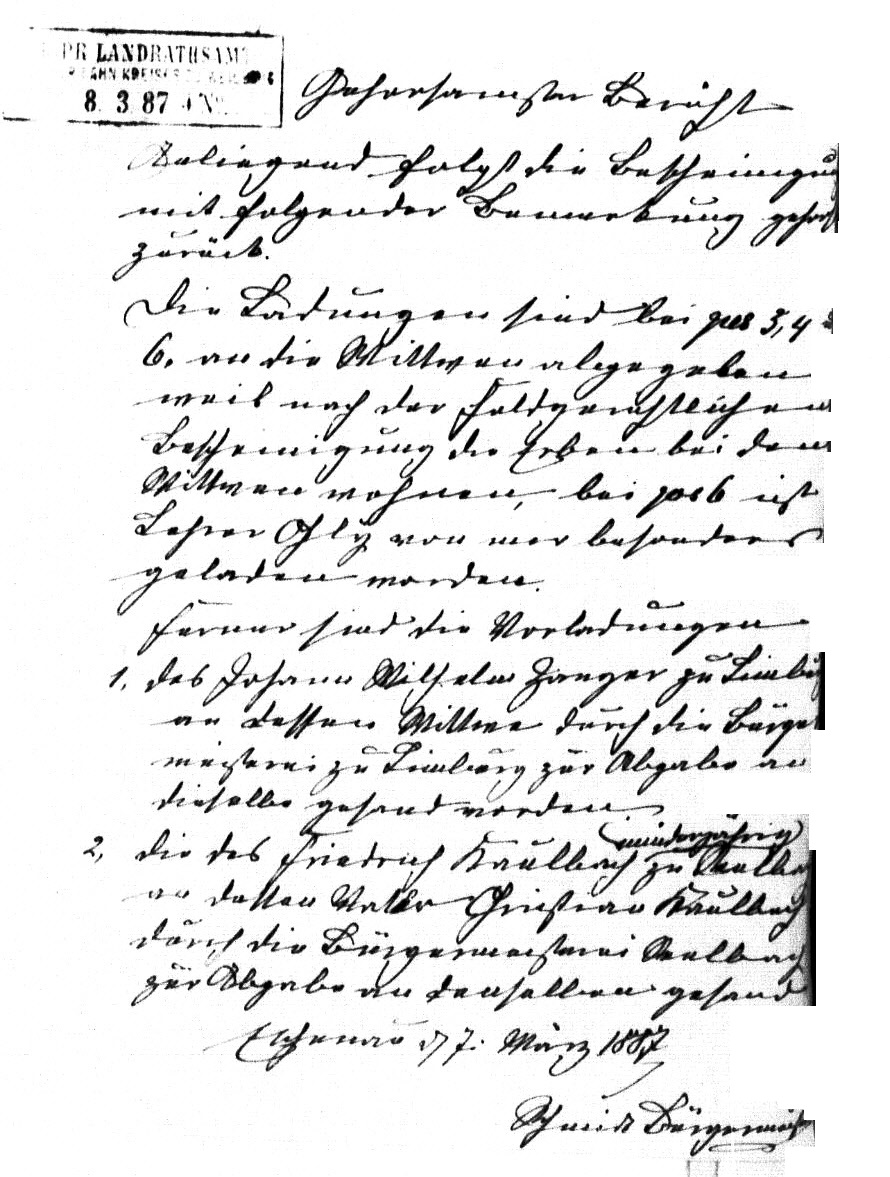 PR LANDRATHSAMT
8. 3. 87
Gehorsamster Bericht
Anliegend folgt die Bescheinigung
mit folgender Bemerkung gehors
zurück.
Die Ladungen sind bei pos 3, 4 &
6. an die Wittwen abgegeben
weil nach der feldgerichtlichen
Bescheinigung die Erben bei den
Wittwen wohnen, bei pos 6 ist
Lehrer Ohly von mir besonders
geladen worden.
Ferner sind die Vorladungen
1, des Johann Wilhelm Zanger zu Limbu
an dessen Wittwe durch die Bürger
meisterei zu Limburg zur Abgabe an
dieselbe gesand worden
2, die des Friedrich Kaulbach (minderjährig) zu Seelbach
an dessen Vater Christian Kaulbach
durch die Bürgermeisterei Seelbach
zur Abgabe an denselben gesand
d 7. März 1887
Schmidt Bürgermeister